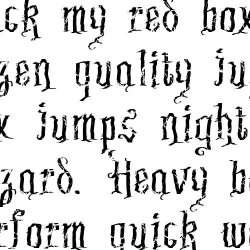 ck my red box
zen quality ju
x jumps night
zard. Heavy b
rform quick w